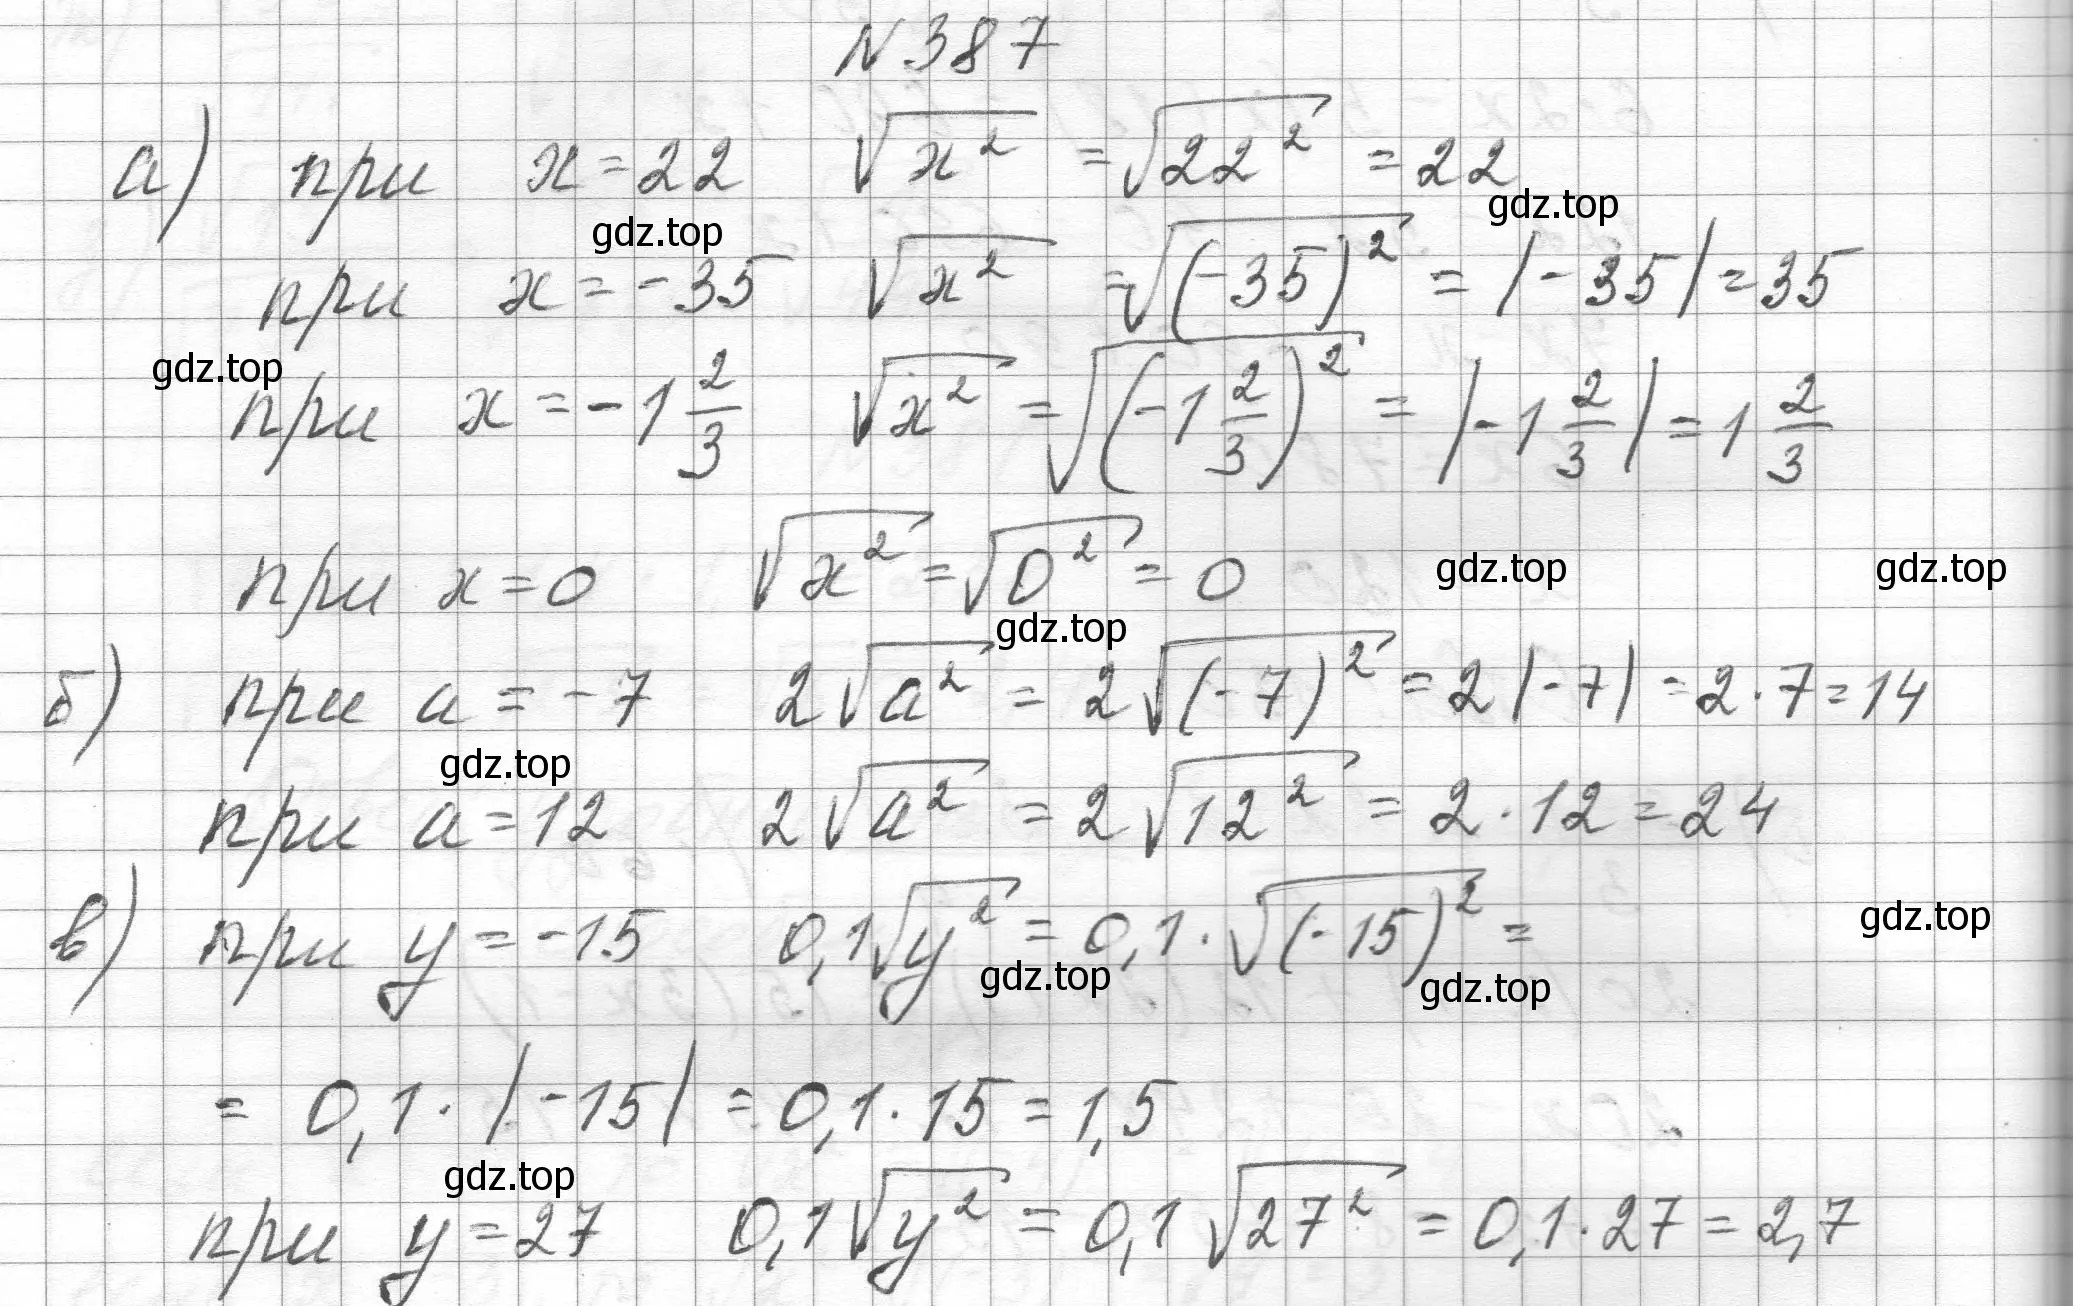 N 387
а) при x = 22 √x² = √22² = 22
gdz.top gdz.top
при x = -35 √x² = √(-35)² = |-35| = 35
gdz.top
при x = -1 2/3 √x² = √(-1 2/3)² = |-1 2/3| = 1 2/3
при x = 0 √x² = √0² = 0
gdz.top gdz.top gdz.top
б) при a = -7 2√a² = 2√(-7)² = 2|-7| = 2·7 = 14
gdz.top
при a = 12 2√a² = 2√12² = 2·12 = 24
в) при y = -15 0,1√y² = 0,1·√(-15)² =
gdz.top gdz.top gdz.top
= 0,1·|-15| = 0,1·15 = 1,5
gdz.top
при y = 27 0,1√y² = 0,1√27² = 0,1·27 = 2,7